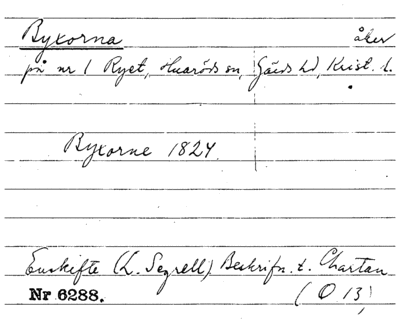 Byxorna åker
på nr 1 Ryet, Huaröds sn, Gärds hd, Krist. l.
Byxorne 1824.
Enskifte (L. Segrell) Beskrifn. t. Chartan
Nr 6288. (Ö 13)